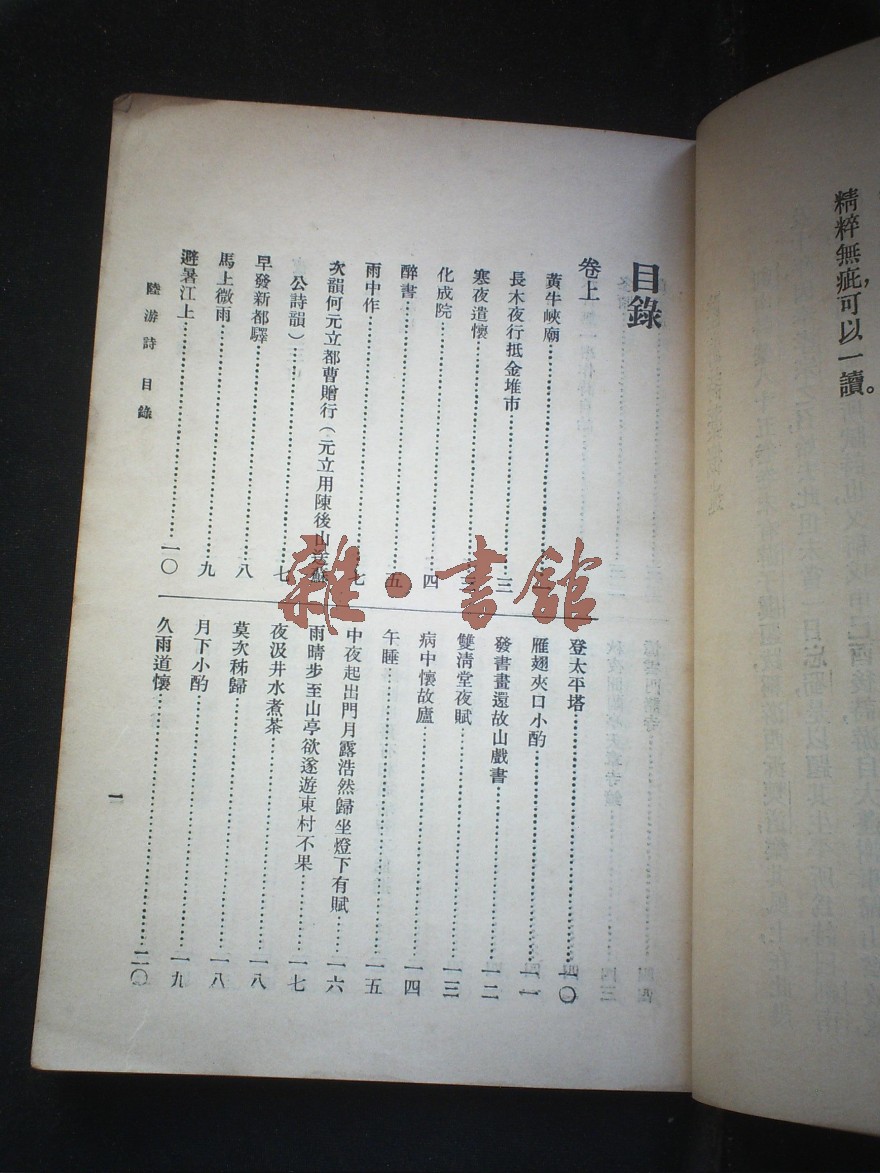 精粹無疵,可以一讀。
目錄
卷上
黃牛峽廟
長木夜行抵金堆市……三
寒夜遣懷
化成院……四
醉書……五
雨中作……七
次韻何元立都曹贈行(元立用陳後山送蘇
公詩韻)……七
早發新都驛……八
馬上微雨……九
避暑江上……一〇
登太平塔
雁翅夾口小酌……一一
發書畫還故山戲書……一二
雙清堂夜賦……一三
病中懷故廬……一四
午睡……一五
中夜起出門月露浩然歸坐燈下有賦……一六
雨晴步至山亭欲遂遊東村不果……一七
夜汲井水煮茶……一八
莫次秭歸……一八
月下小酌……一九
久雨道懷……二〇
陸游詩 目錄
一
雜·書館